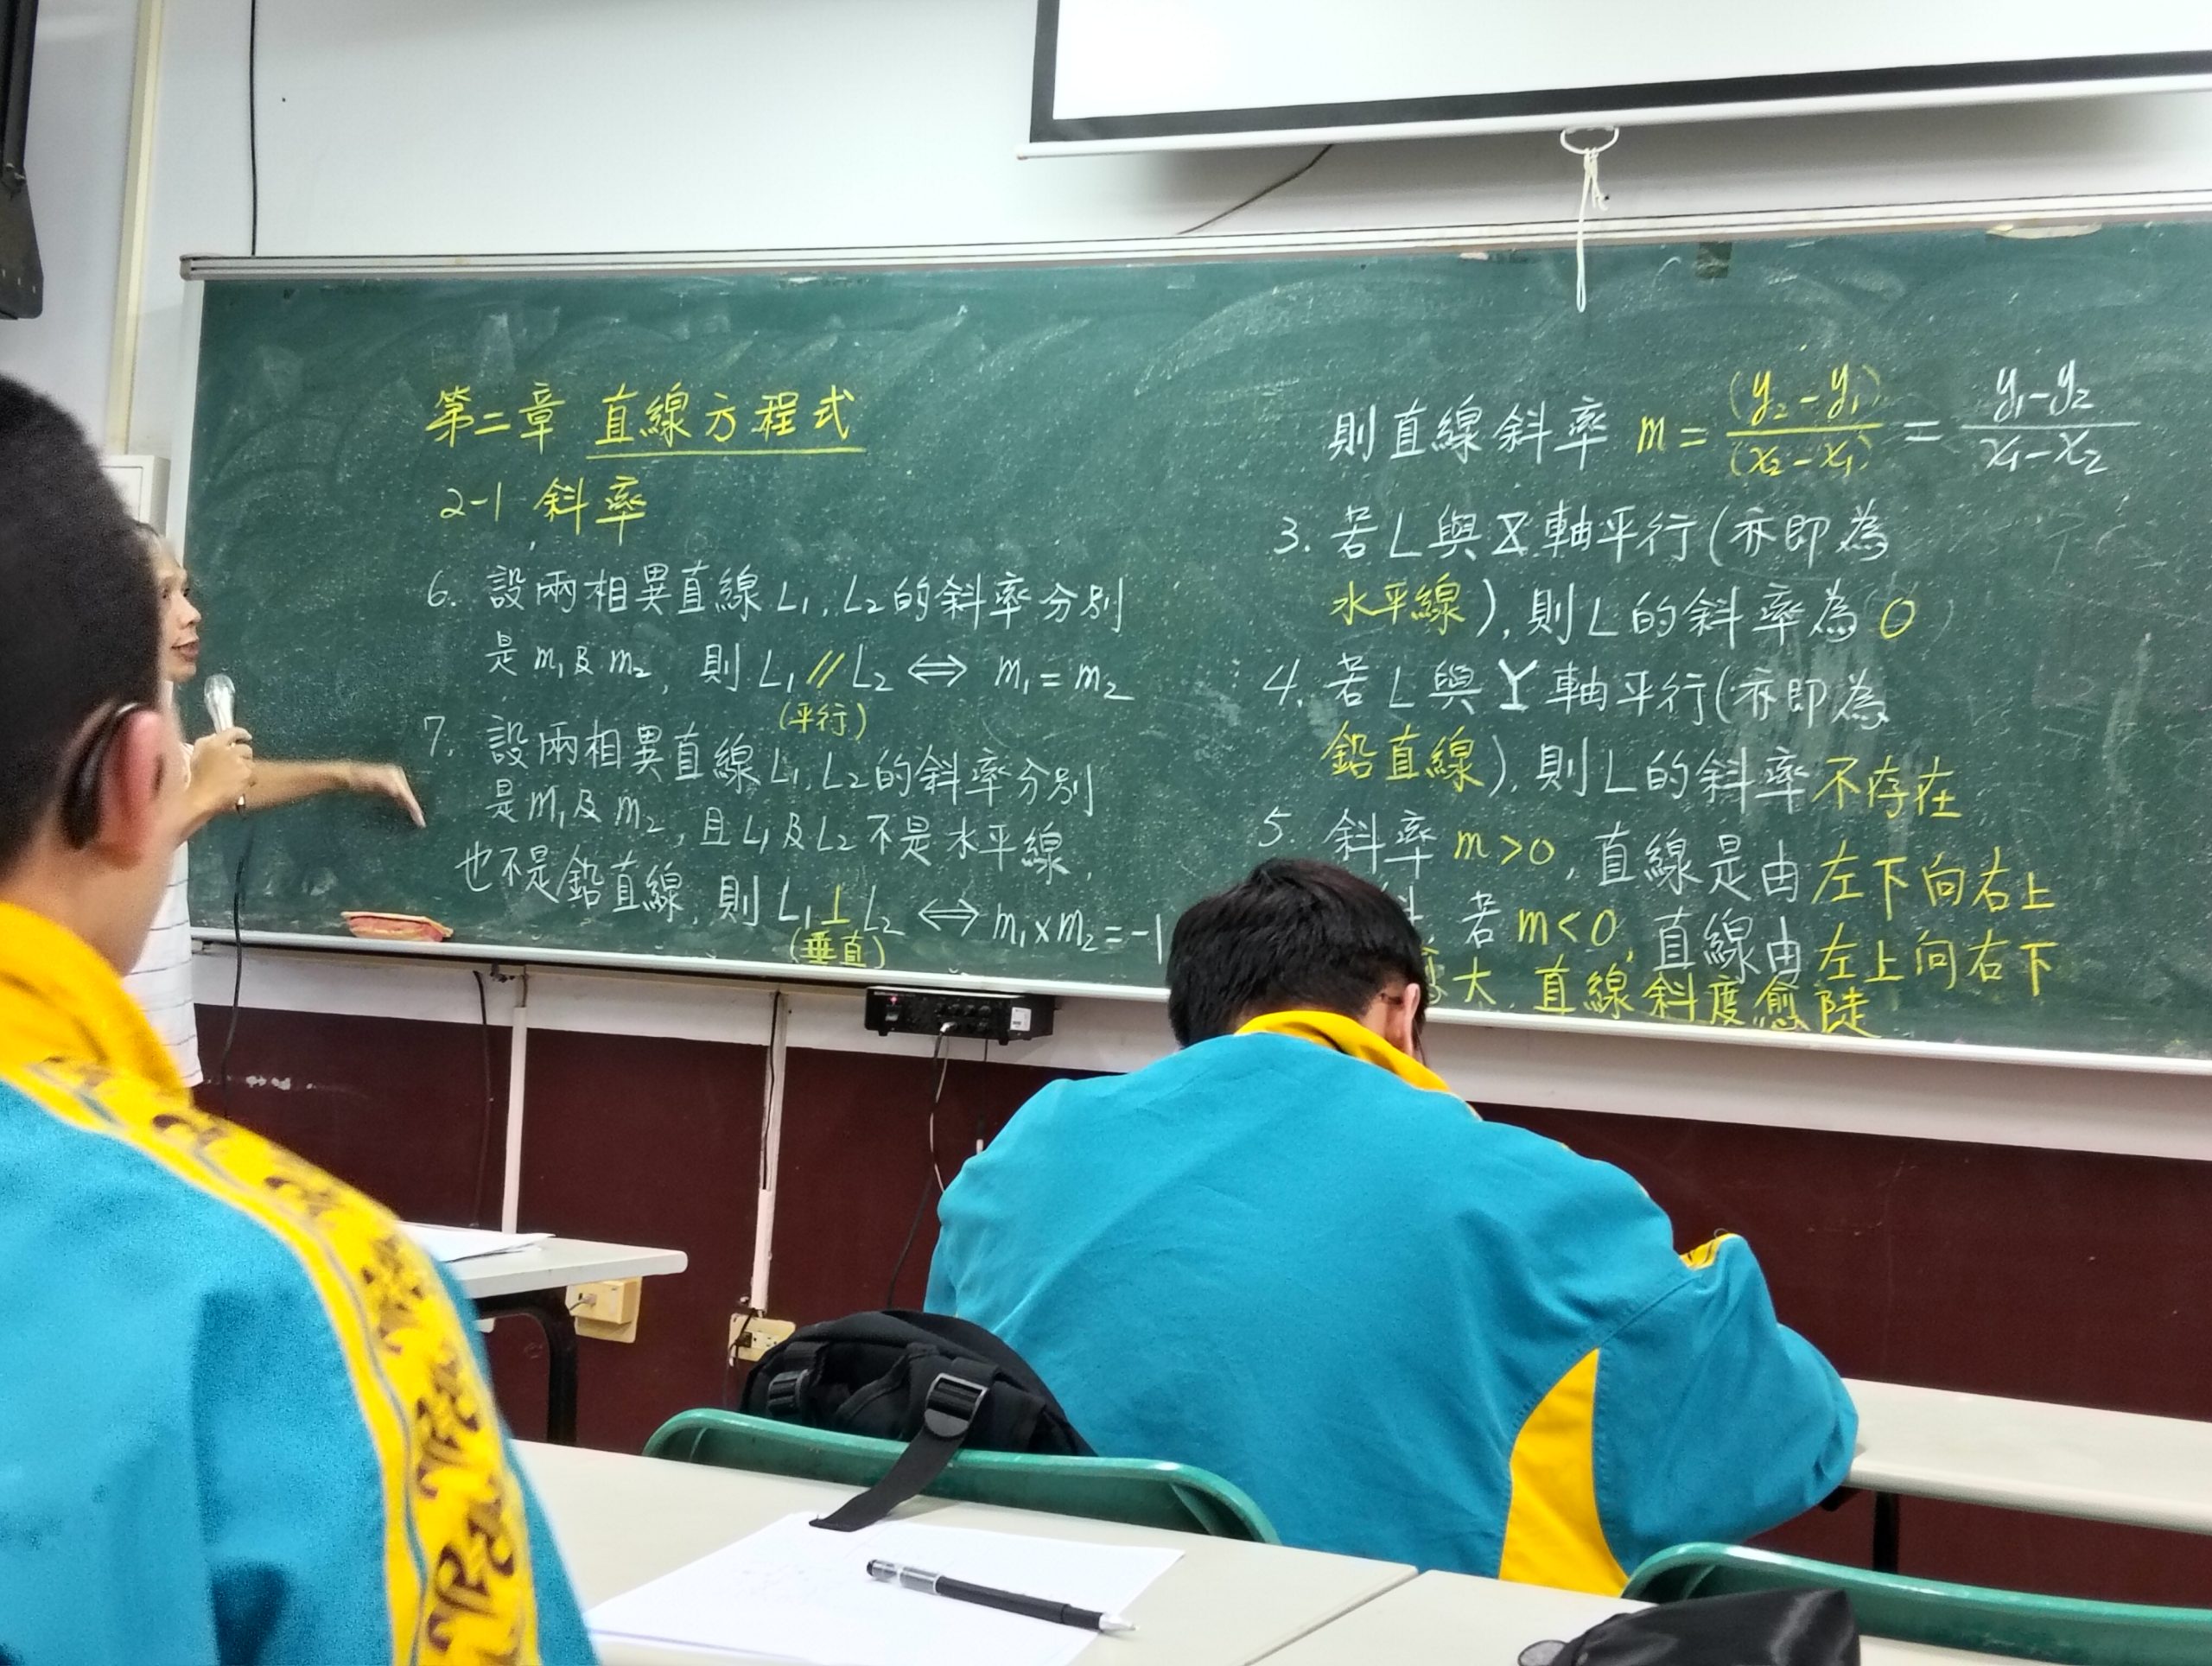 第二章 直線方程式
2-1 斜率
6. 設兩相異直線 L₁, L₂ 的斜率分別
是 m₁ 及 m₂, 則 L₁ // L₂ ⇔ m₁ = m₂
(平行)
7. 設兩相異直線 L₁, L₂ 的斜率分別
是 m₁ 及 m₂, 且 L₁ 及 L₂ 不是水平線,
也不是鉛直線, 則 L₁ ⊥ L₂ ⇔ m₁ × m₂ = -1
(垂直)
則直線斜率 m = (y₂ - y₁)/(x₂ - x₁) = y₁ - y₂/x₁ - x₂
3. 若 L 與 X 軸平行(亦即為
水平線), 則 L 的斜率為 0
4. 若 L 與 Y 軸平行(亦即為
鉛直線), 則 L 的斜率不存在
5. 斜率 m > 0, 直線是由左下向右上
若 m < 0, 直線由左上向右下
大, 直線斜度愈陡